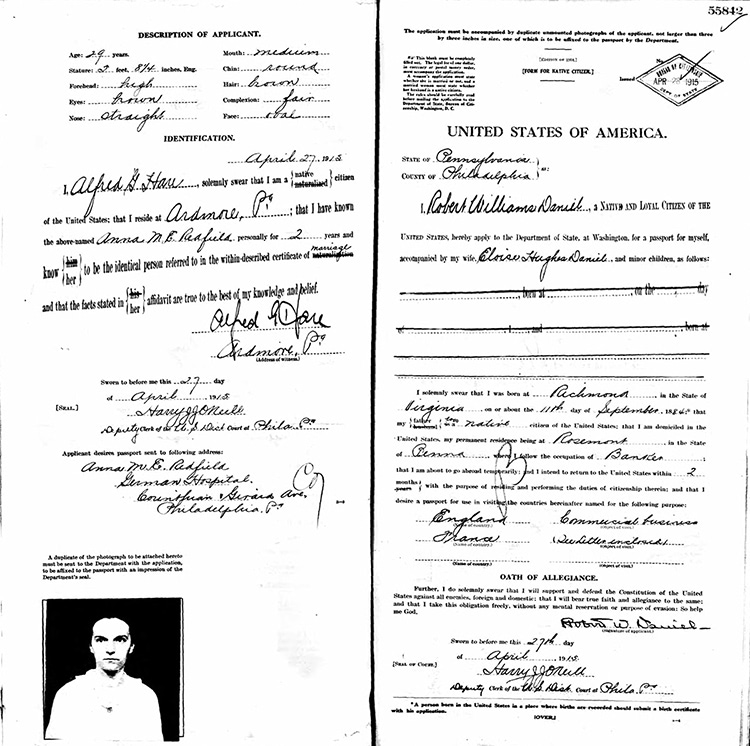 DESCRIPTION OF APPLICANT.
Age: 29 years.
Stature: 5 feet, 8 1/4 inches, Eng.
Forehead: high
Eyes: brown
Nose: straight
Mouth: medium
Chin: round
Hair: brown
Complexion: fair
Face: oval
IDENTIFICATION.
April 27, 1915
I, Alfred G. Hare, solemnly swear that I am a {native naturalized} citizen
of the United States; that I reside at Ardmore, Pa; that I have known
the above-named Anna M. E. Redfield personally for 2 years and
know {him her} to be the identical person referred to in the within-described certificate of marriage naturalization
and that the facts stated in {his her} affidavit are true to the best of my knowledge and belief.
Alfred G. Hare
Ardmore, Pa
(Address of witness.)
Sworn to before me this 27 day
of April 1915
[SEAL.] Harry J O'Neill
Deputy Clerk of the U. S. Dist Court at Phila. Pa
Applicant desires passport sent to following address:
Anna M. E. Redfield
German Hospital,
Corinthian & Girard Ave,
Philadelphia, Pa
A duplicate of the photograph to be attached hereto
must be sent to the Department with the application,
to be affixed to the passport with an impression of the
Department's seal.
55842
The application must be accompanied by duplicate unmounted photographs of the applicant, not larger than three
by three inches in size, one of which is to be affixed to the passport by the Department.
[FORM FOR NATIVE CITIZEN.]
No.
Issued
APR 28 1915
DEPT OF STATE
UNITED STATES OF AMERICA.
STATE OF Pennsylvania
COUNTY OF Philadelphia } ss:
I, Robert Williams Daniel, a NATIVE AND LOYAL CITIZEN OF THE
UNITED STATES, hereby apply to the Department of State, at Washington, for a passport for myself,
accompanied by my wife, Eloise Hughes Daniel, and minor children, as follows:
born at , on the day
of , 1 , and born at
I solemnly swear that I was born at Richmond, in the State of
Virginia on or about the 11th day of September, 1884; that
my {father husband} is a native citizen of the United States; that I am domiciled in the
United States, my permanent residence being at Rosemont, in the State
of Penna, where I follow the occupation of Banker;
that I am about to go abroad temporarily; and I intend to return to the United States within 2
months years with the purpose of residing and performing the duties of citizenship therein; and that I
desire a passport for use in visiting the countries hereinafter named for the following purpose:
England Commercial business
(Name of country.) (Object of visit.)
France (See letter enclosed)
(Name of country.) (Object of visit.)
(Name of country.) (Object of visit.)
OATH OF ALLEGIANCE.
Further, I do solemnly swear that I will support and defend the Constitution of the United
States against all enemies, foreign and domestic; that I will bear true faith and allegiance to the same;
and that I take this obligation freely, without any mental reservation or purpose of evasion: So help
me God.
Robert W. Daniel
(Signature of applicant.)
Sworn to before me this 27th day
of April 1915
[SEAL OF COURT.] Harry J O'Neill
Deputy Clerk of the U. S. Dist Court at Phila. Pa
*A person born in the United States in a place where births are recorded should submit a birth certificate
with his application.
[OVER.]